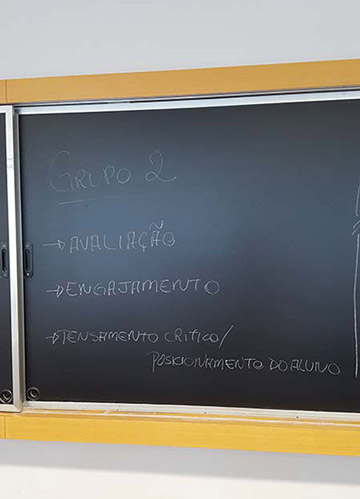 GRUPO 2
→AVALIAÇÃO
→ENGAJAMENTO
→PENSAMENTO CRITICO/
POSICIONAMENTO DO ALUNO